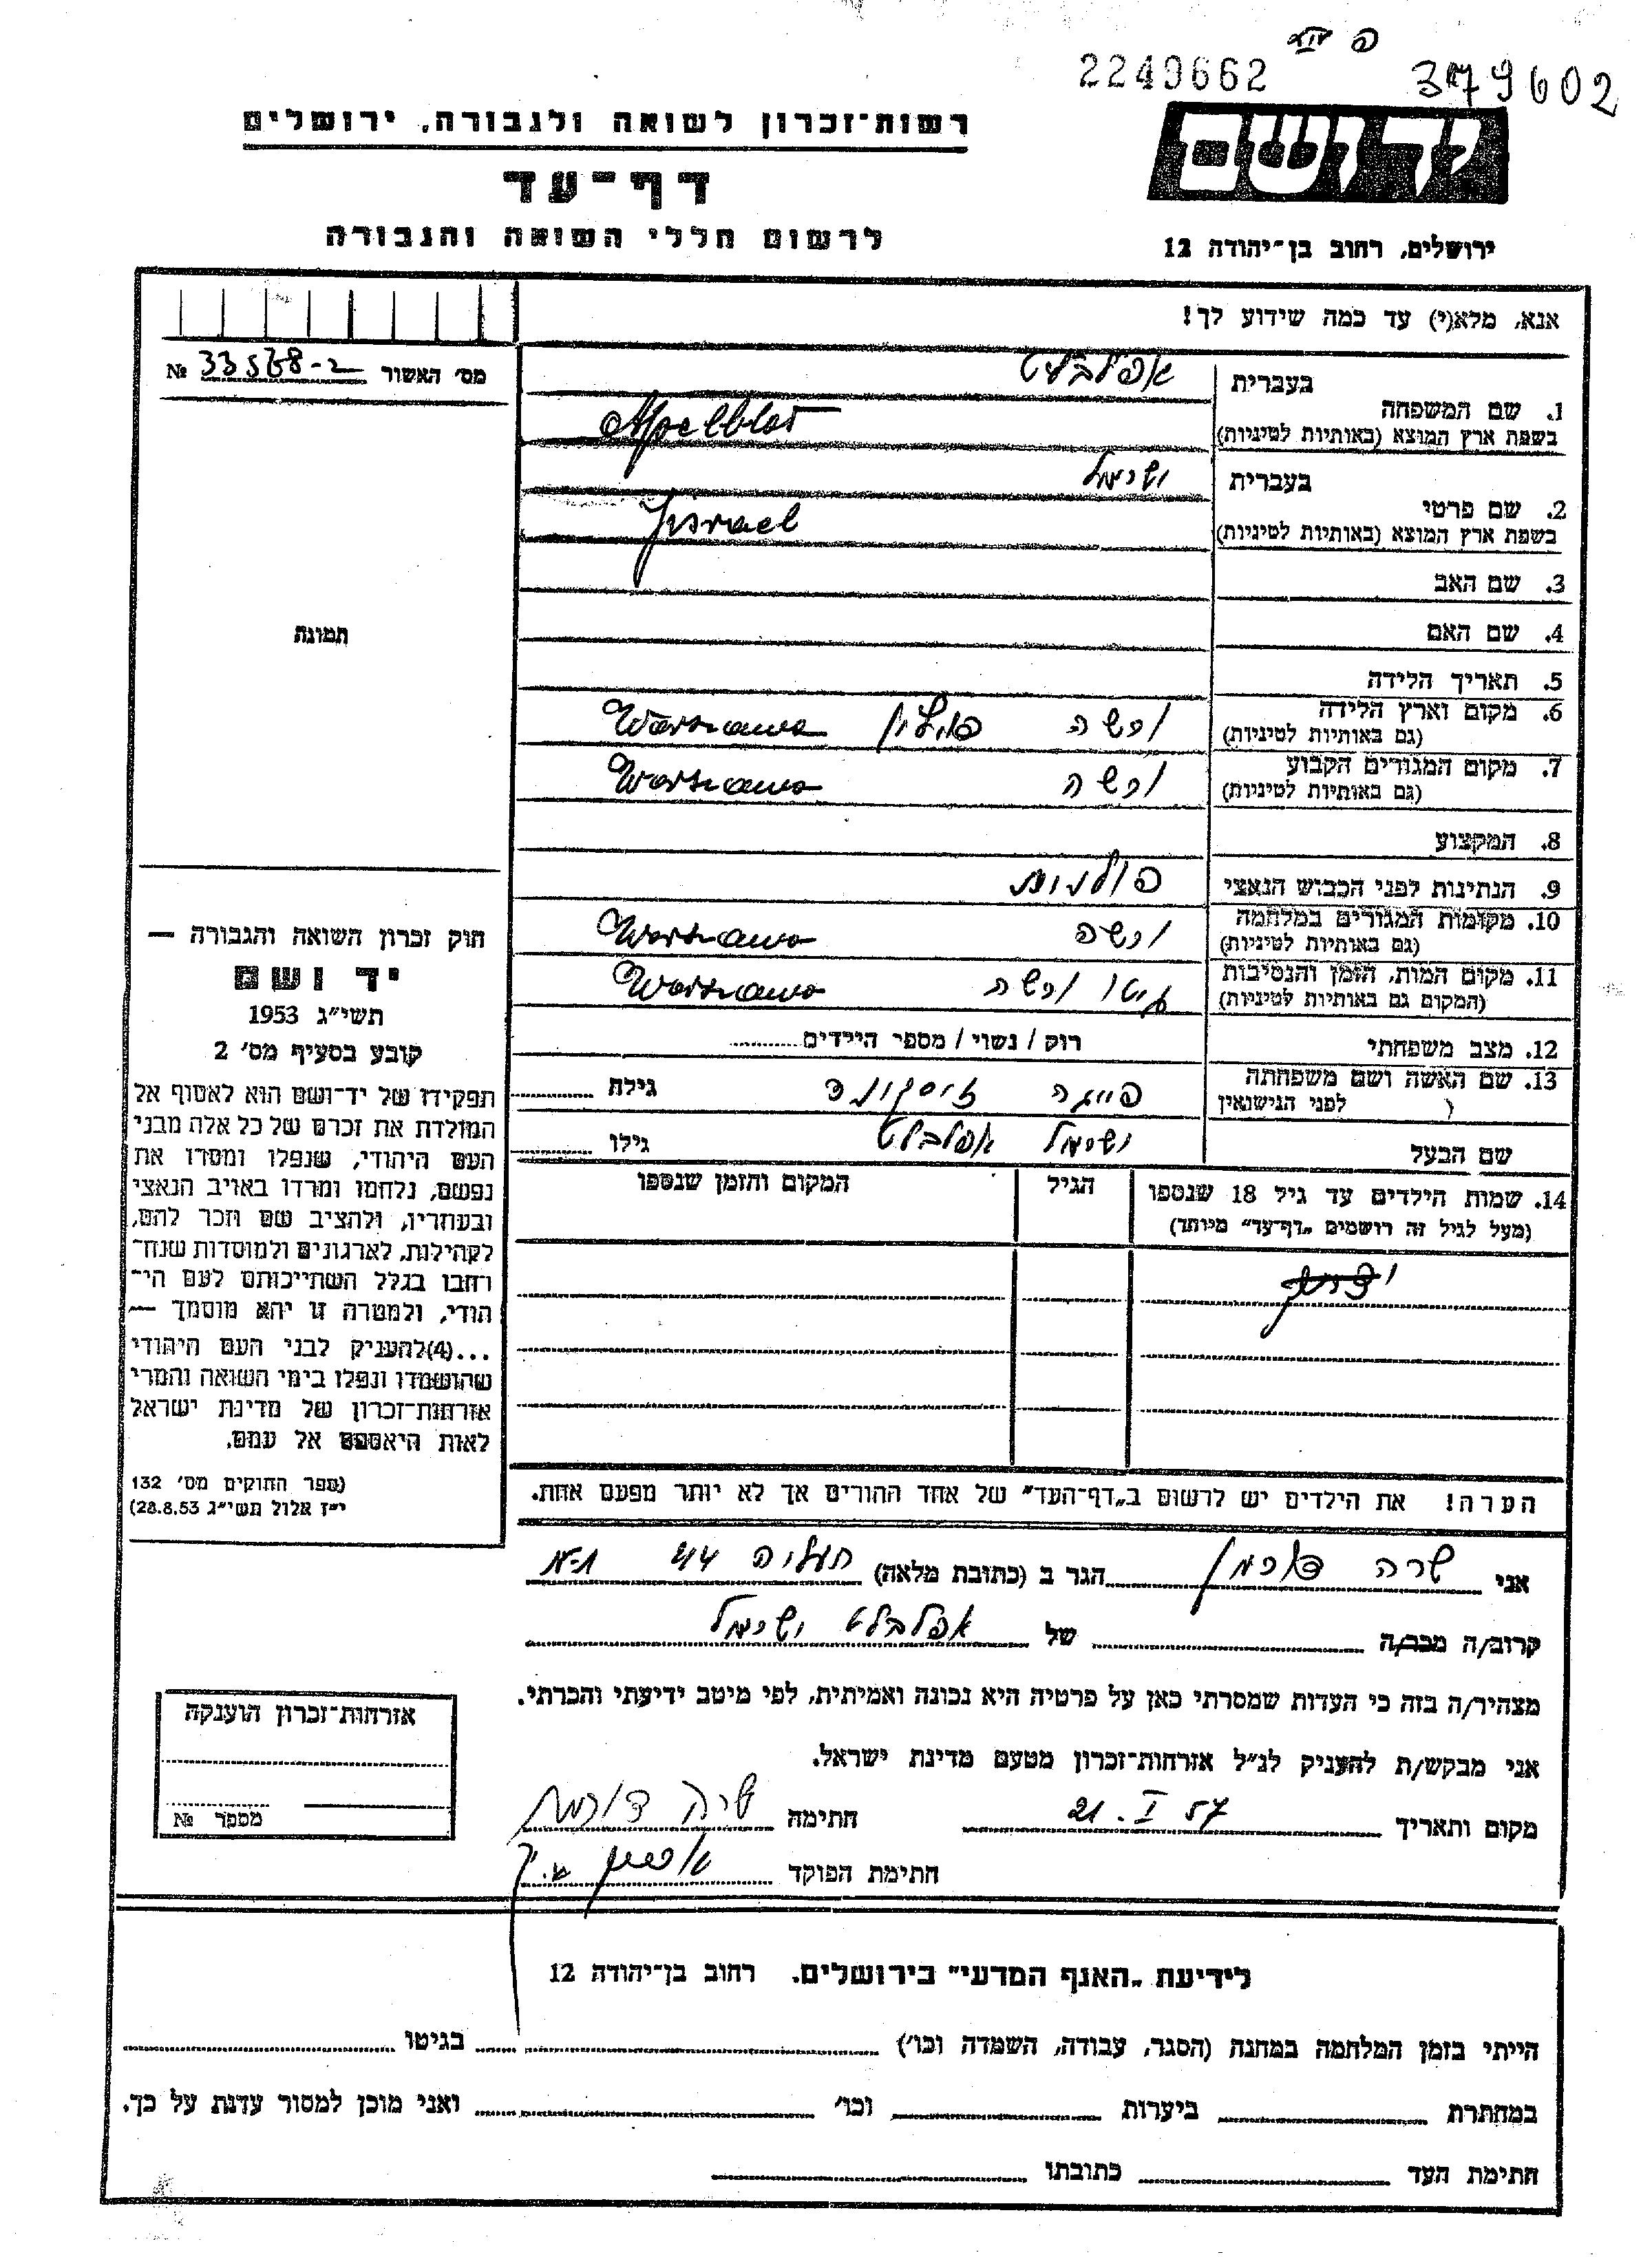 2249662 379602
רשות־זכרון לשואה ולגבורה, ירושלים
יד ושם
דף־עד
לרשום חללי השואה והגבורה
ירושלים, רחוב בן־יהודה 12
אנא, מלא(י) עד כמה שידוע לך!
מס׳ האשור № 33568-2
תמונה
1. שם המשפחה
בעברית אפלבלט
בשפת ארץ המוצא (באותיות לטיניות) Apelblat
2. שם פרטי
בעברית ישראל
בשפת ארץ המוצא (באותיות לטיניות) Jisrael
3. שם האב
4. שם האם
5. תאריך הלידה
6. מקום וארץ הלידה ורשה פולין Warszawa
(גם באותיות לטיניות)
7. מקום המגורים הקבוע ורשה Warszawa
(גם באותיות לטיניות)
8. המקצוע
9. הנתינות לפני הכבוש הנאצי פולנית
10. מקומות המגורים במלחמה ורשה Warszawa
(גם באותיות לטיניות)
11. מקום המות, הזמן והנסיבות גיטו ורשה Warszawa
(המקום גם באותיות לטיניות)
12. מצב משפחתי רוק / נשוי / מספר הילדים
13. שם האשה ושם משפחתה פייגה גילה
לפני הנישואין
שם הבעל ישראל אפלבלט גילו
14. שמות הילדים עד גיל 18 שנספו הגיל המקום והזמן שנספו
(מעל לגיל זה רושמים „דף־עד” מיוחד)
הערה! את הילדים יש לרשום ב„דף־העד” של אחד ההורים אך לא יותר מפעם אחת.
חוק זכרון השואה והגבורה —
יד ושם
תשי״ג 1953
קובע בסעיף מס׳ 2
תפקידו של יד־ושם הוא לאסוף אל
המולדת את זכרם של כל אלה מבני
העם היהודי, שנפלו ומסרו את
נפשם, נלחמו ומרדו באויב הנאצי
ובעוזריו, ולהציב שם וזכר להם,
לקהילות, לארגונים ולמוסדות שנח־
רבו בגלל השתייכותם לעם הי־
הודי, ולמטרה זו יהא מוסמך —
...(4)להעניק לבני העם היהודי
שהושמדו ונפלו בימי השואה והמרי
אזרחות־זכרון של מדינת ישראל
לאות היאספם אל עמם.
(ספר החוקים מס׳ 132
י״ז אלול תשי״ג 28.8.53)
אני שרה הגר ב (כתובת מלאה) 44 ת-א
קרוב/ה מכר/ה של אפלבלט ישראל
מצהיר/ה בזה כי העדות שמסרתי כאן על פרטיה היא נכונה ואמיתית, לפי מיטב ידיעתי והכרתי.
אני מבקש/ת להעניק לנ״ל אזרחות־זכרון מטעם מדינת ישראל.
מקום ותאריך 21.I 57 חתימה שרה
חתימת הפוקד
אזרחות־זכרון הוענקה
מספר №
לידיעת „האגף המדעי” בירושלים, רחוב בן־יהודה 12
הייתי בזמן המלחמה במחנה (הסגר, עבודה, השמדה וכו׳) בגיטו
במחתרת ביערות וכו׳ ואני מוכן למסור עדות על כך.
חתימת העד כתובתו